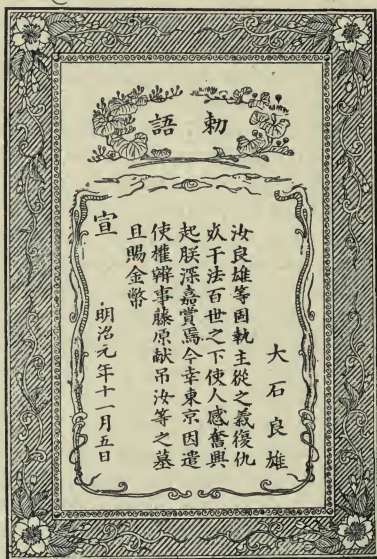 勅語
大石良雄
汝良雄等固執主從之義復仇
死于法百世之下使人感奮興
起朕深嘉賞焉今幸東京因遣
使權辨事藤原献吊汝等之墓
且賜金幣
宣
明治元年十一月五日